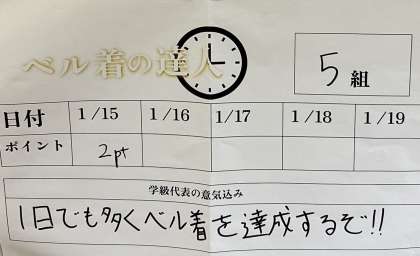 ベル着の達人
5組
日付 1/15 1/16 1/17 1/18 1/19
ポイント 2pt
学級代表の意気込み
1日でも多くベル着を達成するぞ!!